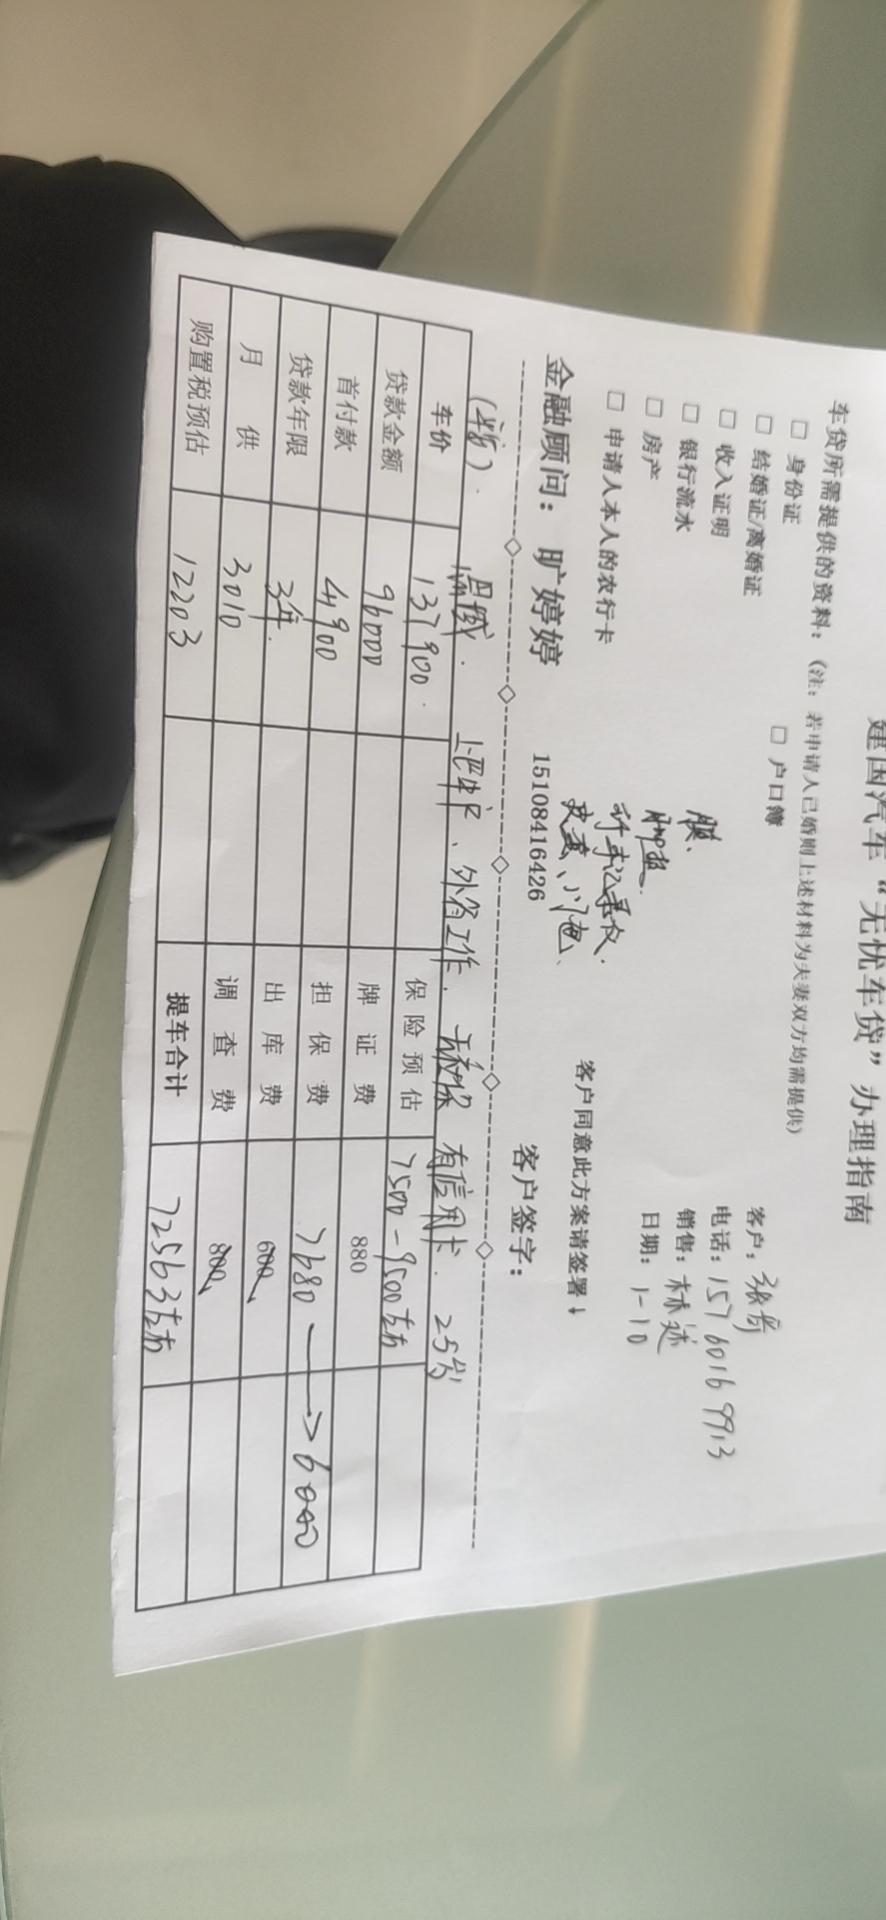 建国汽车“无忧车贷”办理指南
车贷所需提供的资料：（注：若申请人已婚则上述材料为夫妻双方均需提供）
□ 身份证 □ 户口簿
□ 结婚证/离婚证
□ 收入证明
□ 银行流水
□ 房产
□ 申请人本人的农行卡
膜、
脚垫
行车记录仪.
客户：
电话：157 6016 9913
销售：林述
日期：1-10
客户同意此方案请签署↓
金融顾问：旷婷婷 15108416426 客户签字：
上班 外省工作. 有信用卡. 25岁
车价 137900. 保险预估 7500-9500左右
贷款金额 96000 牌证费 880
首付款 41900 担保费 7680 → 6000
贷款年限 3年. 出库费 600
月供 3010 调查费 800
购置税预估 12203 提车合计 72563左右